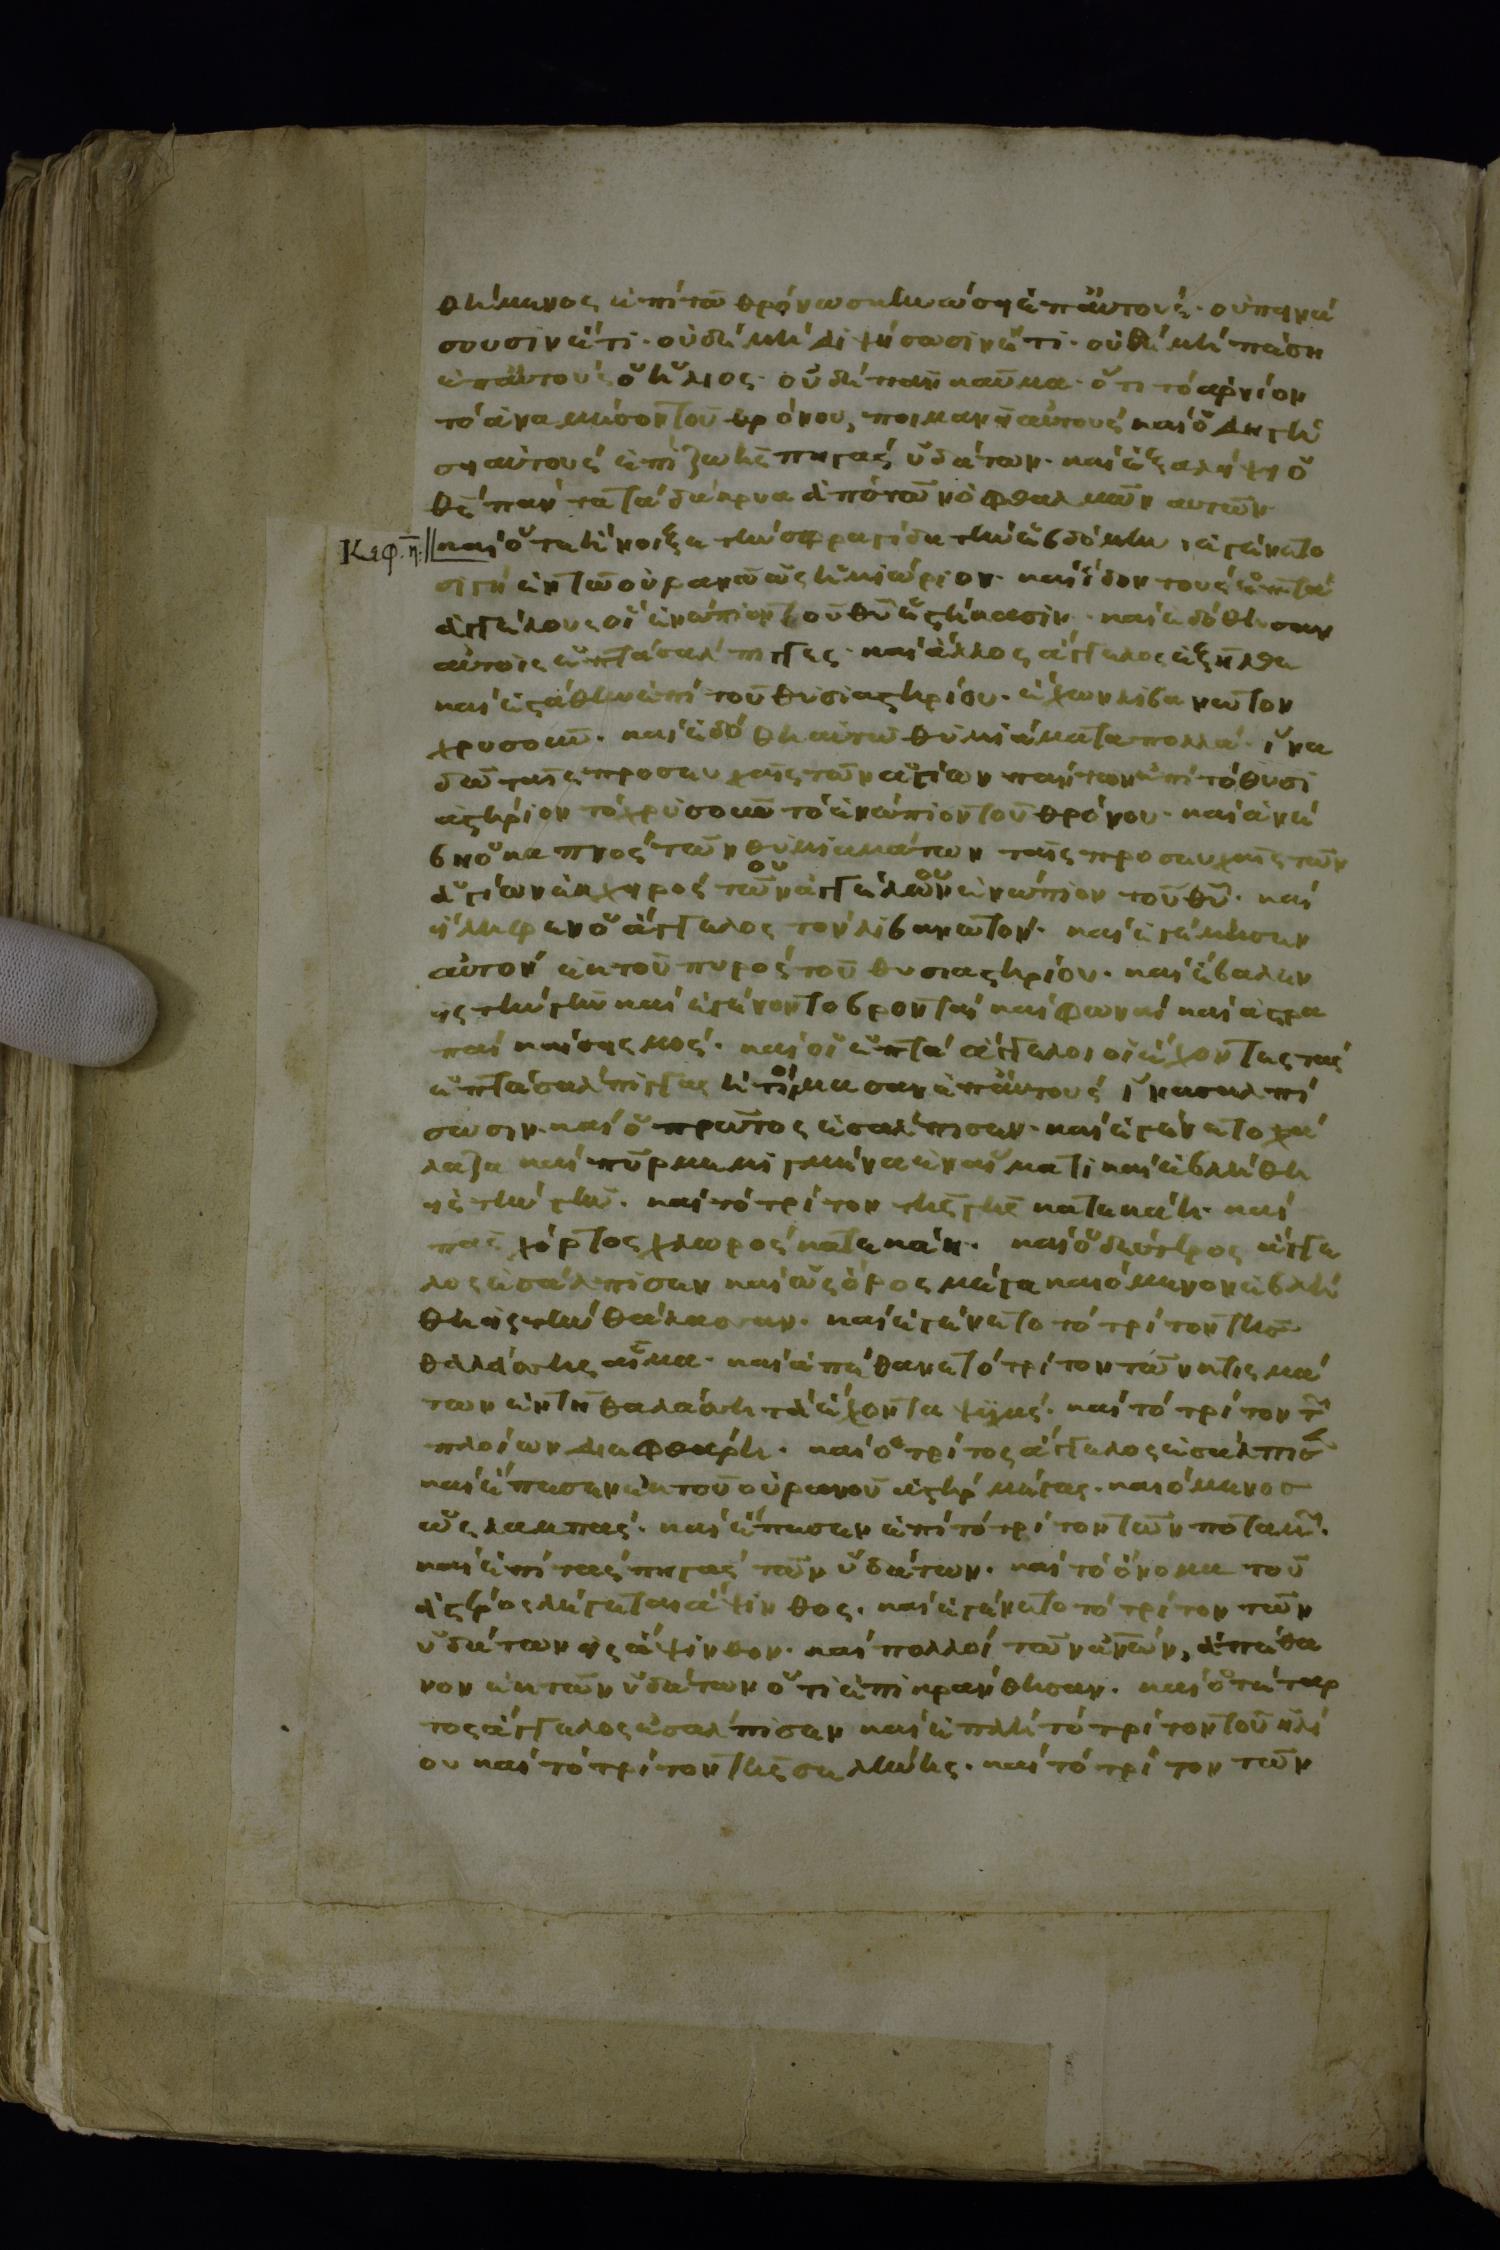 θήμενος ἐπὶ τῶ θρόνω σκηνώσει ἐπ' αὐτούς· οὐ πεινά
σουσιν ἔτι· οὐδὲ μὴ διψήσωσιν ἔτι· οὐδὲ μὴ πέση
ἐπ' αὐτοὺς ὁ ἥλιος· οὐδὲ πᾶν καῦμα· ὅτι τὸ ἀρνίον
τὸ ἀνὰ μέσον τοῦ θρόνου, ποιμανεῖ αὐτοὺς καὶ ὁδηγή
σει αὐτοὺς ἐπὶ ζωῆς πηγὰς ὑδάτων· καὶ ἐξαλείψει ὁ
θς πάντα τὰ δάκρυα ἀπὸ τῶν ὀφθαλμῶν αυτῶν·
Κεφ. η: καὶ ὅτε ἤνοιξε τὴν σφραγίδα τὴν ἑβδόμην, ἐγένετο
σιγὴ ἐν τῶ οὐρανῶ ὡς ἡμιώριον· καὶ ἴδον τοὺς ἑπτὰ
ἀγγέλους οἳ ἐνώπιον τοῦ θυ ἑστήκασιν· καὶ ἐδόθησαν
αὐτοῖς ἑπτὰ σάλπιγγες· καὶ ἄλλος ἄγγελος ἐξῆλθε
καὶ ἐστάθην ἐπὶ τοῦ θυσιαστηρίου· ἔχων λιβανωτὸν
χρυσοῦν· καὶ ἐδόθη αὐτῶ θυμιάματα πολλά· ἵνα
δῶ ταῖς προσευχαῖς τῶν ἁγίων πάντων ἐπὶ τὸ θυσι
αστήριον τὸ χρυσοῦν τὸ ἐνώπιον τοῦ θρόνου· καὶ ἀνέ
βη ὁ καπνὸς τῶν θυμιαμάτων ταῖς προσευχαῖς τῶν
ἁγίων ἐκ χειρὸς τοῦ ἀγγέλου ἐνώπιον τοῦ θυ· καὶ
εἴληφεν ὁ ἄγγελος τὸν λιβανωτόν· καὶ ἐγέμισεν
αὐτὸν ἐκ τοῦ πυρὸς τοῦ θυσιαστηρίου· καὶ ἔβαλεν
εἰς τὴν γῆν καὶ ἐγένοντο βρονταὶ καὶ φωναὶ καὶ ἀστρα
παὶ καὶ σεισμός· καὶ οἱ ἑπτὰ ἄγγελοι οἱ ἔχοντες τὰς
ἑπτὰ σάλπιγγας ἡτοίμασαν ἐπ' αὐτοὺς ἵνα σαλπί
σωσιν· καὶ ὁ πρῶτος ἐσάλπισεν· καὶ ἐγένετο χά
λαζα καὶ πῦρ μεμιγμένα ἐν αἵματι καὶ ἐβλήθη
εἰς τὴν γῆν· καὶ τὸ τρίτον τῆς γῆς κατεκάη· καὶ
πᾶς χόρτος χλωρὸς κατεκάη· καὶ ὁ δεύτερος ἄγγε
λος ἐσάλπισεν καὶ ὡς ὄρος μέγα καιόμενον ἐβλή
θη εἰς τὴν θάλασσαν· καὶ ἐγένετο τὸ τρίτον τῆς
θαλάσσης αἷμα· καὶ ἀπέθανε τὸ τρίτον τῶν κτισμά
των ἐν τῆ θαλάσση τὰ ἔχοντα ψυχάς· καὶ τὸ τρίτον τῶν
πλοίων διεφθάρη· καὶ ὁ τρίτος ἄγγελος ἐσάλπισεν
καὶ ἔπεσεν ἐκ τοῦ οὐρανοῦ ἀστὴρ μέγας· καιόμενος
ὡς λαμπάς· καὶ ἔπεσεν ἐπὶ τὸ τρίτον τῶν ποταμῶν·
καὶ ἐπὶ τὰς πηγὰς τῶν ὑδάτων· καὶ τὸ ὄνομα τοῦ
ἀστέρος λέγεται ἄψινθος· καὶ ἐγένετο τὸ τρίτον τῶν
ὑδάτων εἰς ἄψινθον· καὶ πολλοὶ τῶν ἀνῶν, ἀπέθα
νον ἐκ τῶν ὑδάτων ὅτι ἐπικράνθησαν· καὶ ὁ τέταρ
τος ἄγγελος ἐσάλπισεν καὶ ἐπλή τὸ τρίτον τοῦ ἡλί
ου καὶ τὸ τρίτον τῆς σελήνης· καὶ τὸ τρίτον τῶν